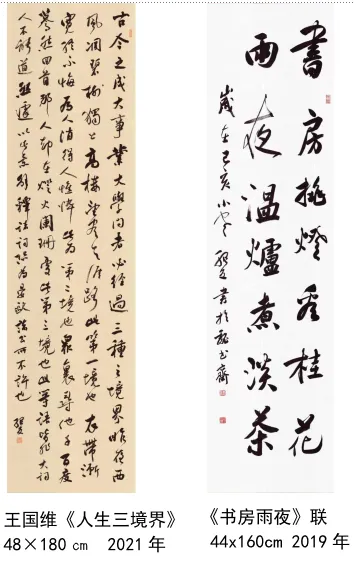 古今之成大事業大學问者必经過三種之境界昨夜西
風凋碧樹獨上高樓望盡天涯路此第一境也衣帶漸
寬終不悔为伊消得人憔悴此为第二境也眾裏尋他千百度
驀然回首那人却在燈火闌珊處此第三境也此等語皆非大詞
人不能道然遽以此意解釋諸詞恐为晏歐諸公所不許也
王国维《人生三境界》
48×180 cm 2021 年
書房挑燈看桂花
雨夜温爐煮淡茶
歲在己亥小雪 書於 齋
《书房雨夜》联
44x160cm 2019 年